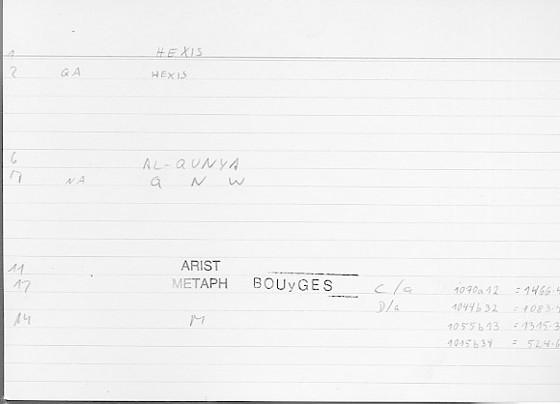 1 HEXIS
2 GA HEXIS
6 AL-QUNYA
NA Q N W
11 ARIST
17 METAPH BOUyGES C/a 1070a12 = 1466.4
D/a 1044b32 = 1083.4
14 M 1055b13 = 1315.3
1015b34 = 524.6